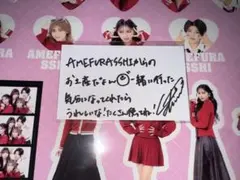 AMEFURASSHI
AMEFURASSHI
AMEFURASSHIからの
お土産だよ〜 一緒に行った
気分になってくれたら
うれしいな!たくさん使ってね